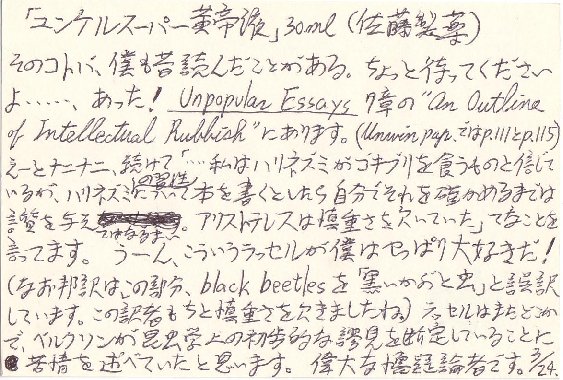 「ユンケルスーパー黄帝液」30ml(佐藤製薬)
そのコトバ、僕も昔読んだことがある。ちょっと待ってください
よ……、あった! Unpopular Essays 7章の"An Outline
of Intellectual Rubbish"にあります。(Unwin pap.ではp.111とp.115)
えーとナニナニ、続けて「…私はハリネズミがコキブリを食うものと信じて
いるが、ハリネズミの習性について本を書くとしたら自分でそれを確かめるまでは
言質を与えてはなるまい。アリストテレスは慎重さを欠いていた」てなことを
言ってます。うーん、こういうラッセルが僕はやっぱり大好きだ!
(なお邦訳はこの部分、black beetlesを「黒いかぶと虫」と誤訳
しています。この訳者もちと慎重さを欠きましたね。)ラッセルはまたどこか
で、ベルクソンが昆虫学上の初歩的な謬見を断定していることに
苦情を述べていたと思います。偉大な懐疑論者です。3/24.